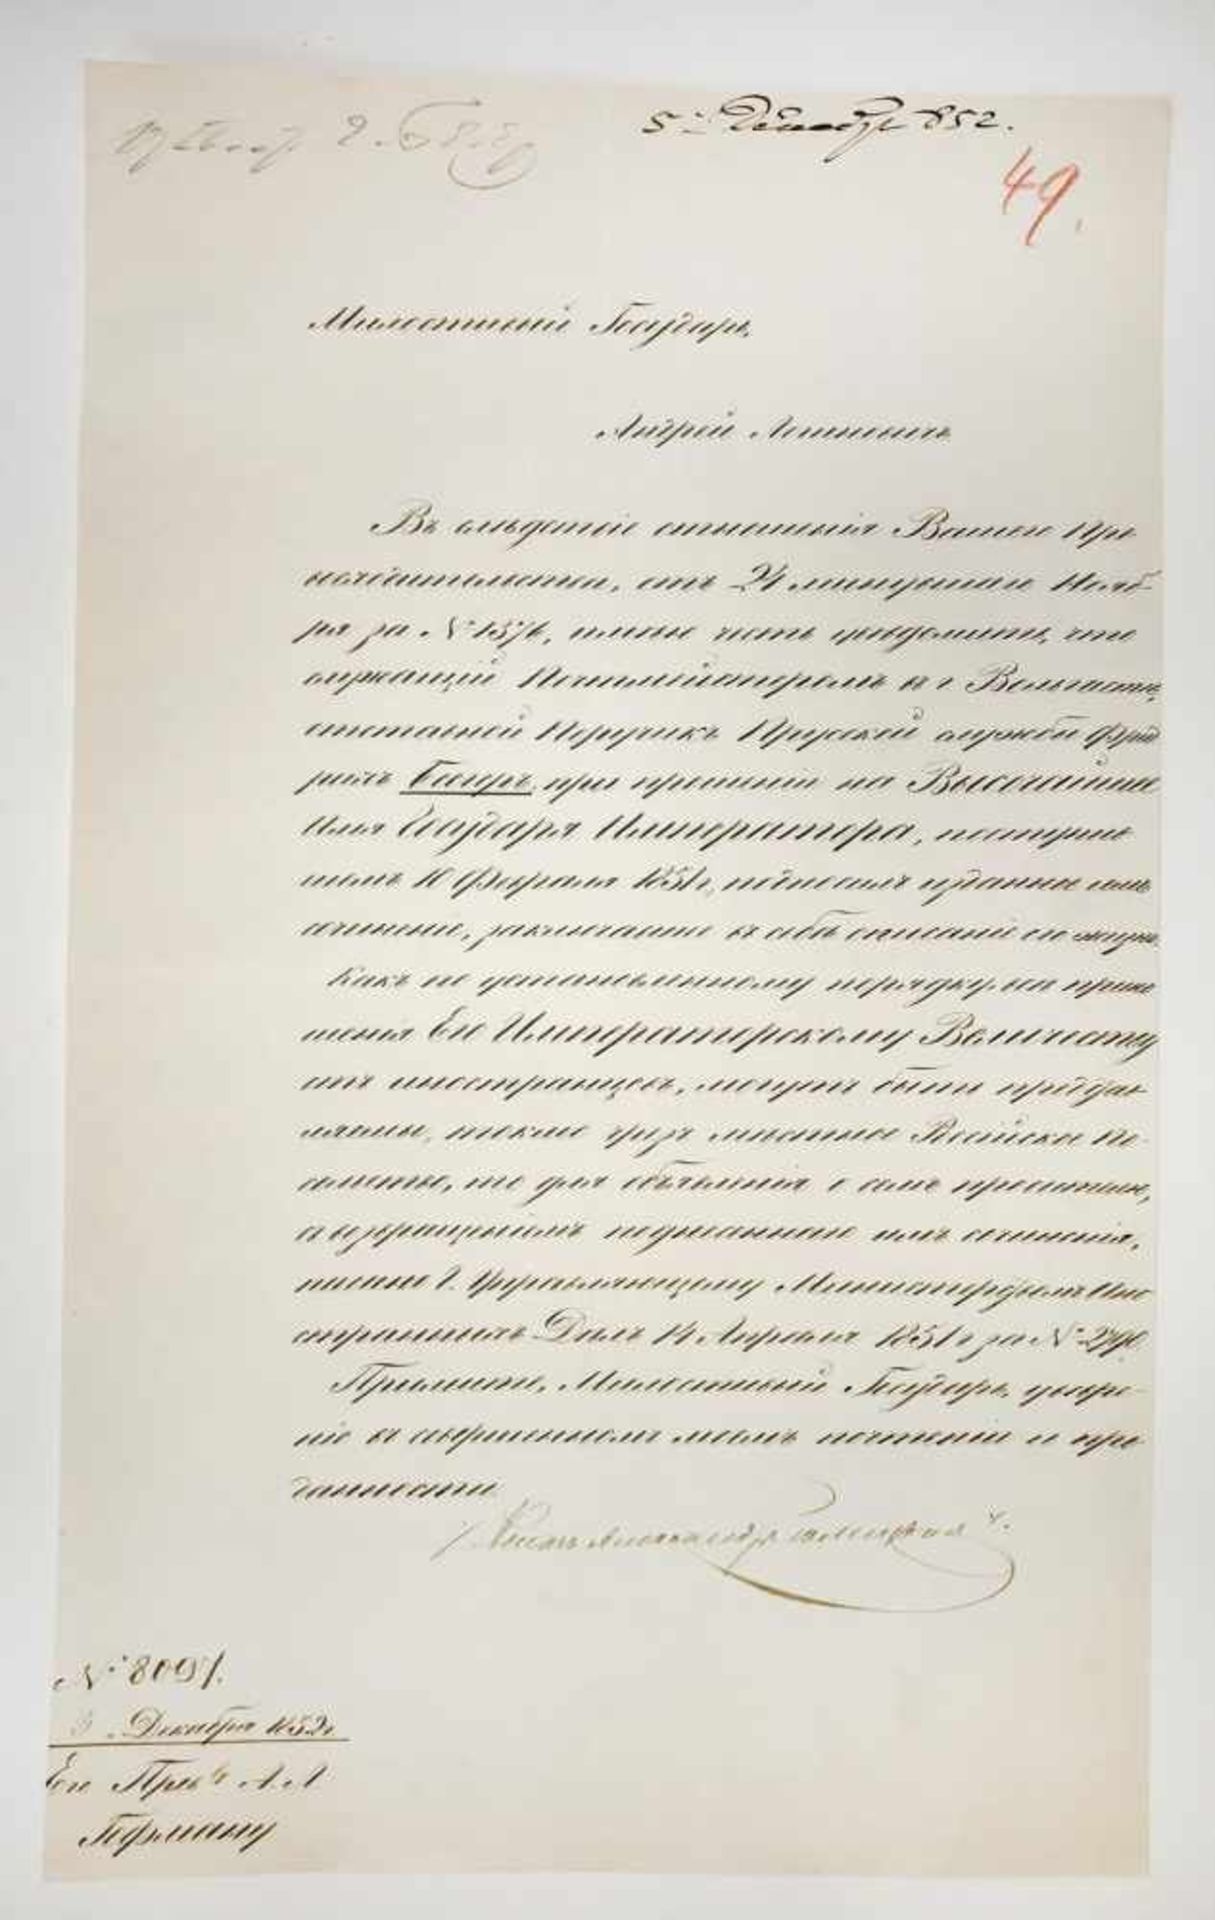 5го Декабр. 852.
49.
Милостивый Государь,
Андрей Логиновичъ
Въ слѣдствіе отношенія Вашего Пре-
восходительства, отъ 24 минувшаго Нояб-
ря за № 1576, имѣю честь увѣдомить, что
служащій Почтмейстеромъ въ г. Вольгастѣ,
отставной Поручикъ Прусской службы Фрид-
рихъ Багръ, при прошеніи на Высочайшее
Имя Государя Императора, поступив-
шемъ 10 Февраля 1851 г., подносилъ изданное имъ
сочиненіе, заключающее въ себѣ описаніе его жизни.
Какъ по установленному порядку, всѣ прино-
шенія Его Императорскому Величеству
отъ иностранцевъ, могутъ быть представ-
ляемы, токмо чрезъ мѣстныя Россійскія По-
сольства, то для объявленія о семъ просителю,
съ возвращеніемъ поднесеннаго имъ сочиненія,
писано Г. Управляющему Министерствомъ Ино-
странныхъ Дѣлъ 14 Апрѣля 1851 г. за №
Примите, Милостивый Государь, увѣре-
ніе въ совершенномъ моемъ почтеніи и пре-
данности
Князь Александръ Голицынъ
№ 8091.
3 Декабря 1852 г.
Его Прву А. Л.
Гофману